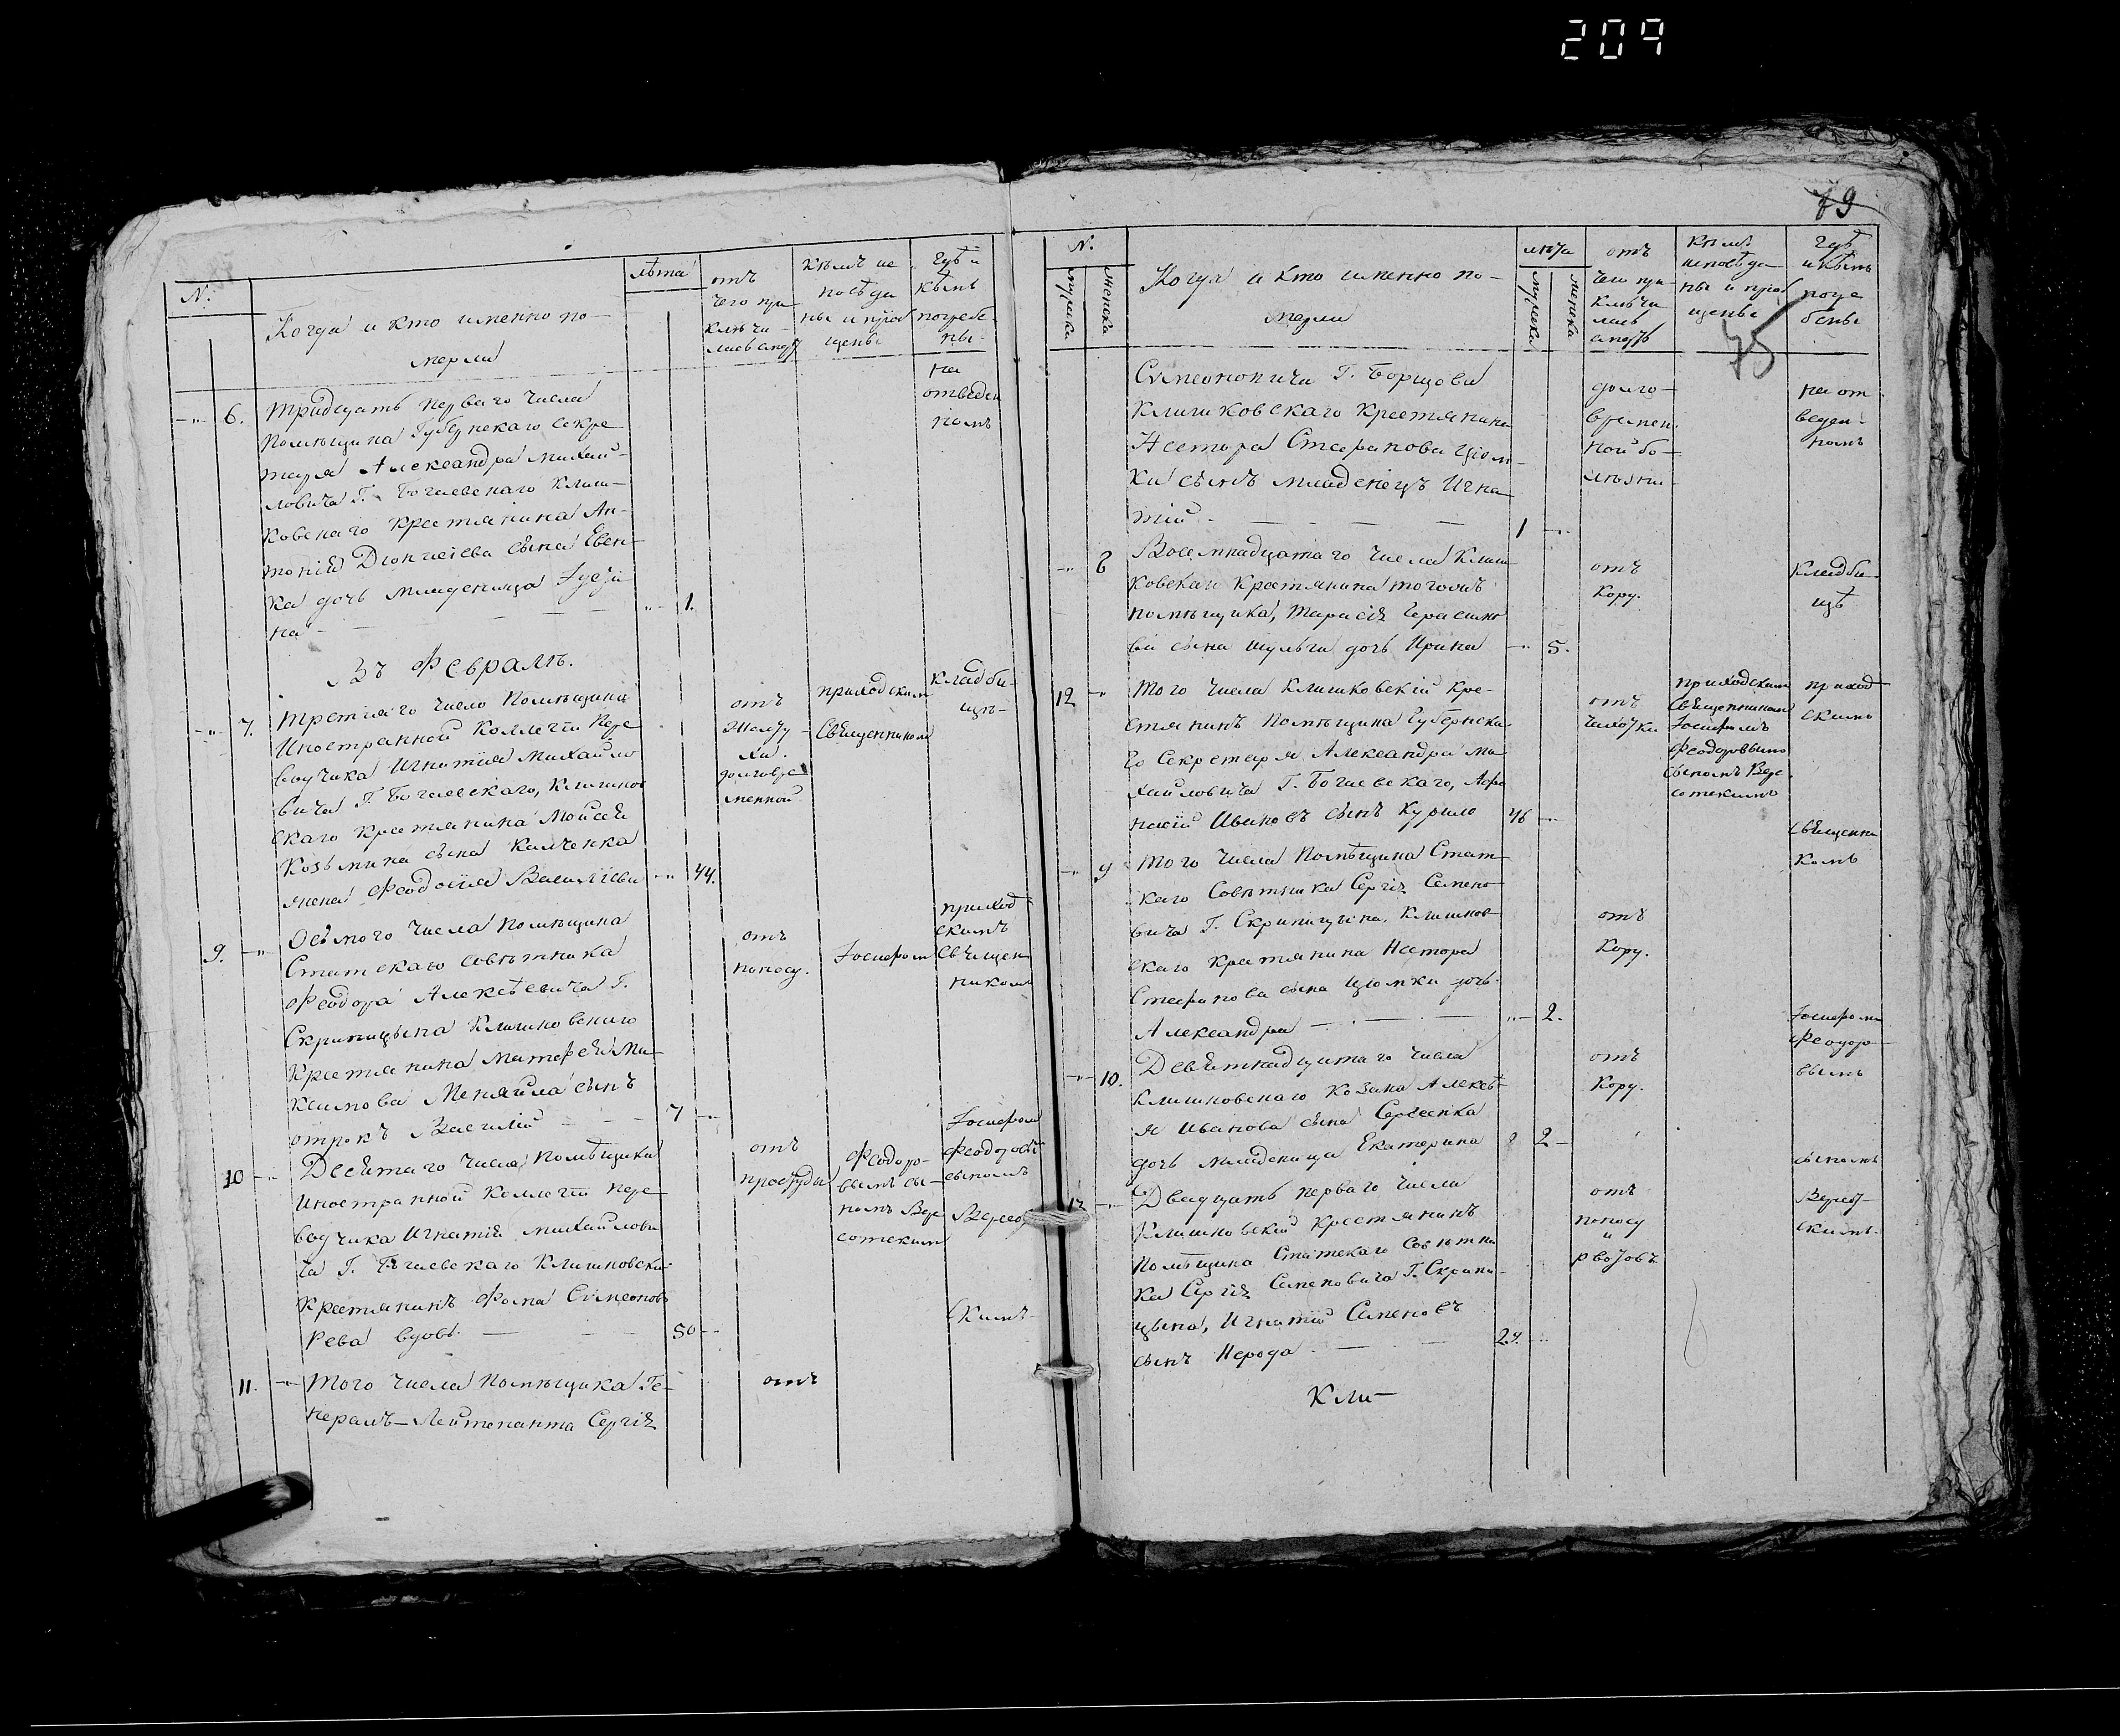 209
N.
Когда и кто именно по-
мерли
лѣта
отъ
чего при-
ключи-
лась смер
кѣмъ ис
повѣда
ны и прiоб
щены
Гдѣ и
кѣмъ
погребе
ны.
6. Тридцать перваго числа
помѣщика Губернскаго Секре
таря Александра Михай-
ловича Г. Богаевскаго Клиш-
ковскаго крестянина Ан-
тонiя Дiонисiева сына Евен-
ка дочь младеница
на - 1.
на
отведен
номъ
Въ Февралѣ.
7. Третяго число помѣщика
Иностранной Коллегiи Пере
водчика Игнатiя Михайло
вича Г. Богаевскаго, Клишков
скаго крестянина Мойсея
Козьмина сына Калченка
жена Феодосiя Васильева 44.
отъ
долговре
менной
приходским
Священником
кладби-
щѣ-
9. Осьмого числа помѣщика
Статскаго совѣтника
Феодора Алексѣевича Г.
Скрипицына Клишковскаго
крестянина Матфея Ма-
ксимова Меняйла сынъ
отрокъ Василiй - 7
отъ
поносу.
Iосифом
приход
скимъ
Священ
никомъ
10 Десятаго числа помѣщика
Иностранной Коллегiи Пере
водчика Игнатiя Михайлови
ча Г. Богаевскаго Клишковскiй
крестянинъ Фома Сумеоновъ
Рева вдовъ. - 50
отъ
простуды
Феодоро-
вымъ сы-
номъ Вере
сотскимъ
Iосифом
Феодоровы
сыномъ
Вересо
скимъ
11. Того числа помѣщика Ге-
нералъ-Лейтенанта Сергiя
отъ
79
75
N.
мужска
женска
Когда и кто именно по-
мерли
лѣта
мужска
женска
отъ
чего при-
ключи
лась
смерть
кѣмъ
исповѣда
ны и прiоб
щены
гдѣ
и кѣмъ
погре
бены
Сумеоновича Г. Борщова
Клишковскаго крестянина
Нестора Стефанова Цюм-
ки сынъ младенецъ Игна
тiй - 1
долго-
времен.
ной бо-
лѣзни
на от
веден-
номъ
8 Восемнадцатаго числа Клиш
ковскаго крестянина тогожъ
помѣщика, Тарасiя Герасимо
ва сына Шульги дочь Ирина 5.
отъ
кору.
кладби
щѣ
12 Того числа Клишковскiй кре-
стянинъ помѣщика Губернска
го Секретаря Александра Ми
хайловича Г. Богаевскаго, Афа
насiй Ивановъ сынъ Курило 46
отъ
чихотки
приходским
Священником
Iосифомъ
Феодоровымъ
сыномъ Вере
сотскимъ
приход
скимъ
9 Того числа помѣщика Стат
скаго Совѣтника Сергiя Семено
вича Г. Скрипицына, Клишков
скаго крестянина Нестора
Стефанова сына Цюмки дочь
Александра - 2.
отъ
кору.
Священни
комъ
10. Девятнадцатаго числа
Клишковскаго козака Алексѣ
я Иванова сына Сергеенка
дочь младеница Екатерина 2
отъ
кору.
Iосифомъ
Феодоро-
вымъ
13 Двадцать перваго числа
Клишковскiй крестянинъ
помѣщика Статскаго Совѣтни
ка Сергiя Семеновича Г. Скрипи-
цына, Игнатiй Семеновъ
сынъ Нерода - 24.
отъ
поносу
и
рвотовъ
сыномъ
Верест
скимъ.
Кли-